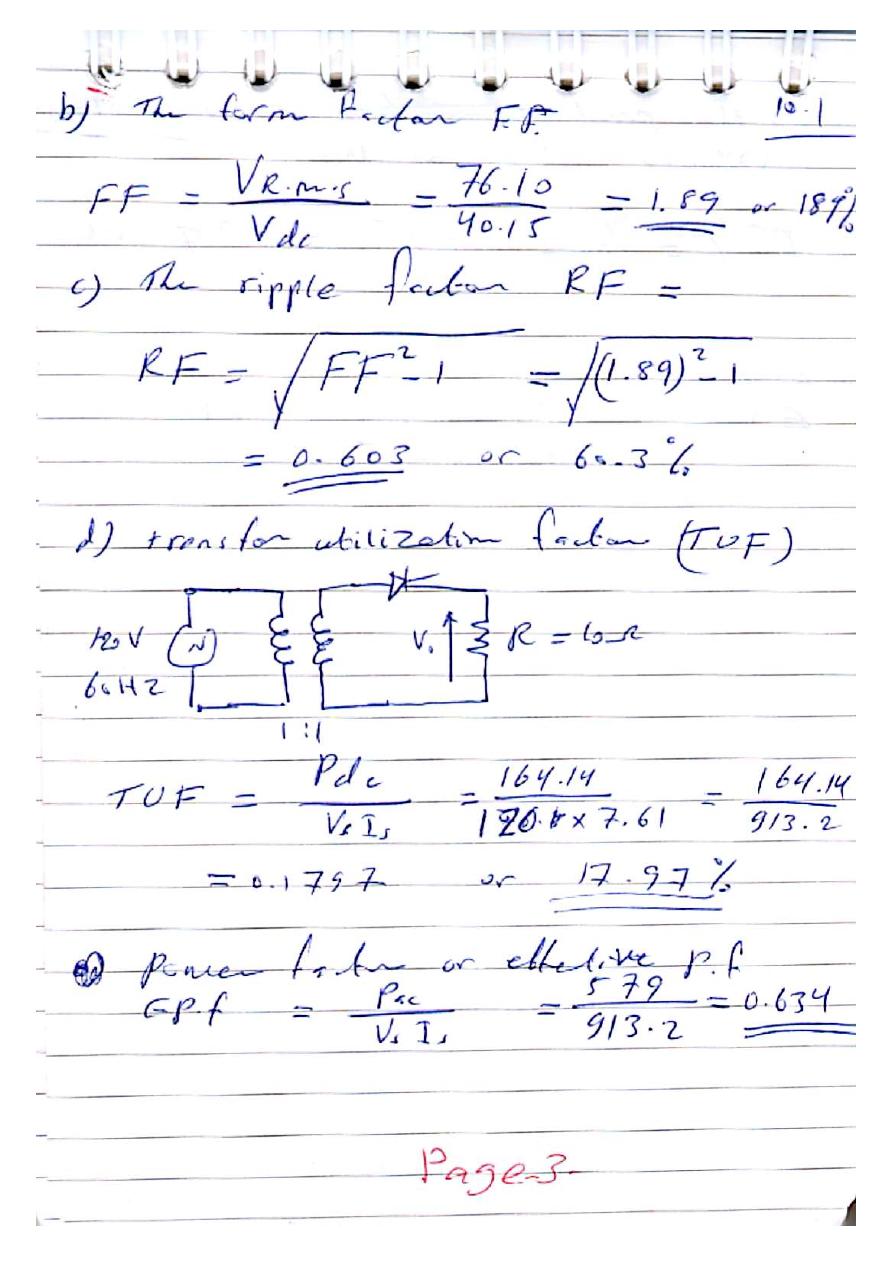 b) The form Factor F.F. 10.1
FF = VR.m.s / Vdc = 76.10 / 40.15 = 1.89 or 189%
c) The ripple factor RF =
RF = √(FF² - 1) = √((1.89)² - 1)
= 0.603 or 60.3%
d) transfor utilization factor (TUF)
120V
60HZ
V. R = 10Ω
1:1
TUF = Pdc / Vs Is = 164.14 / 120 x 7.61 = 164.14 / 913.2
= 0.1797 or 17.97%
Power factor or effective p.f
EP.f = Pac / Vs Is = 579 / 913.2 = 0.634
Page-3-